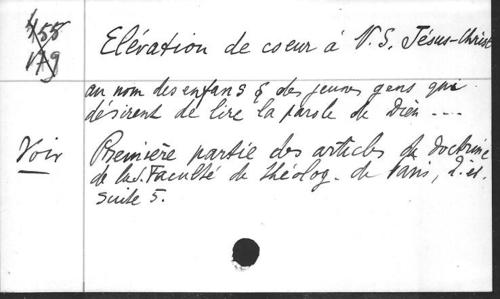 455
Elévation de coeur à N. S. Jésus-Christ
au nom des enfans & des jeunes gens qui
désirent de lire la parole de Dieu ---
Voir Première partie des articles de doctrine
de la s. Faculté de théolog. de Paris,
suite 5.